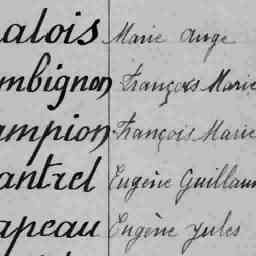 alois Marie Ange
mbignon François Marie
ampion François Marie
antrel Eugène Guillaum
apeau Eugène Jules